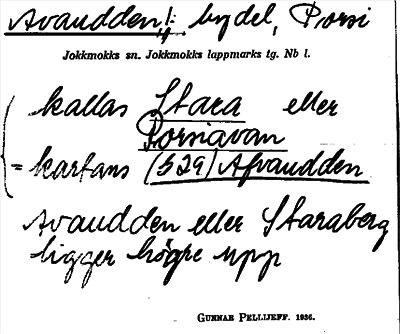 Avaudden!: bydel, Porsi
Jokkmokks sn. Jokkmokks lappmarks tg. Nb l.
kallas Stara eller
Porsiavan
= kartans (529) Afvaudden
Avaudden eller Staraberg
ligger högre upp
GUNNAR PELLIJEFF. 1936.